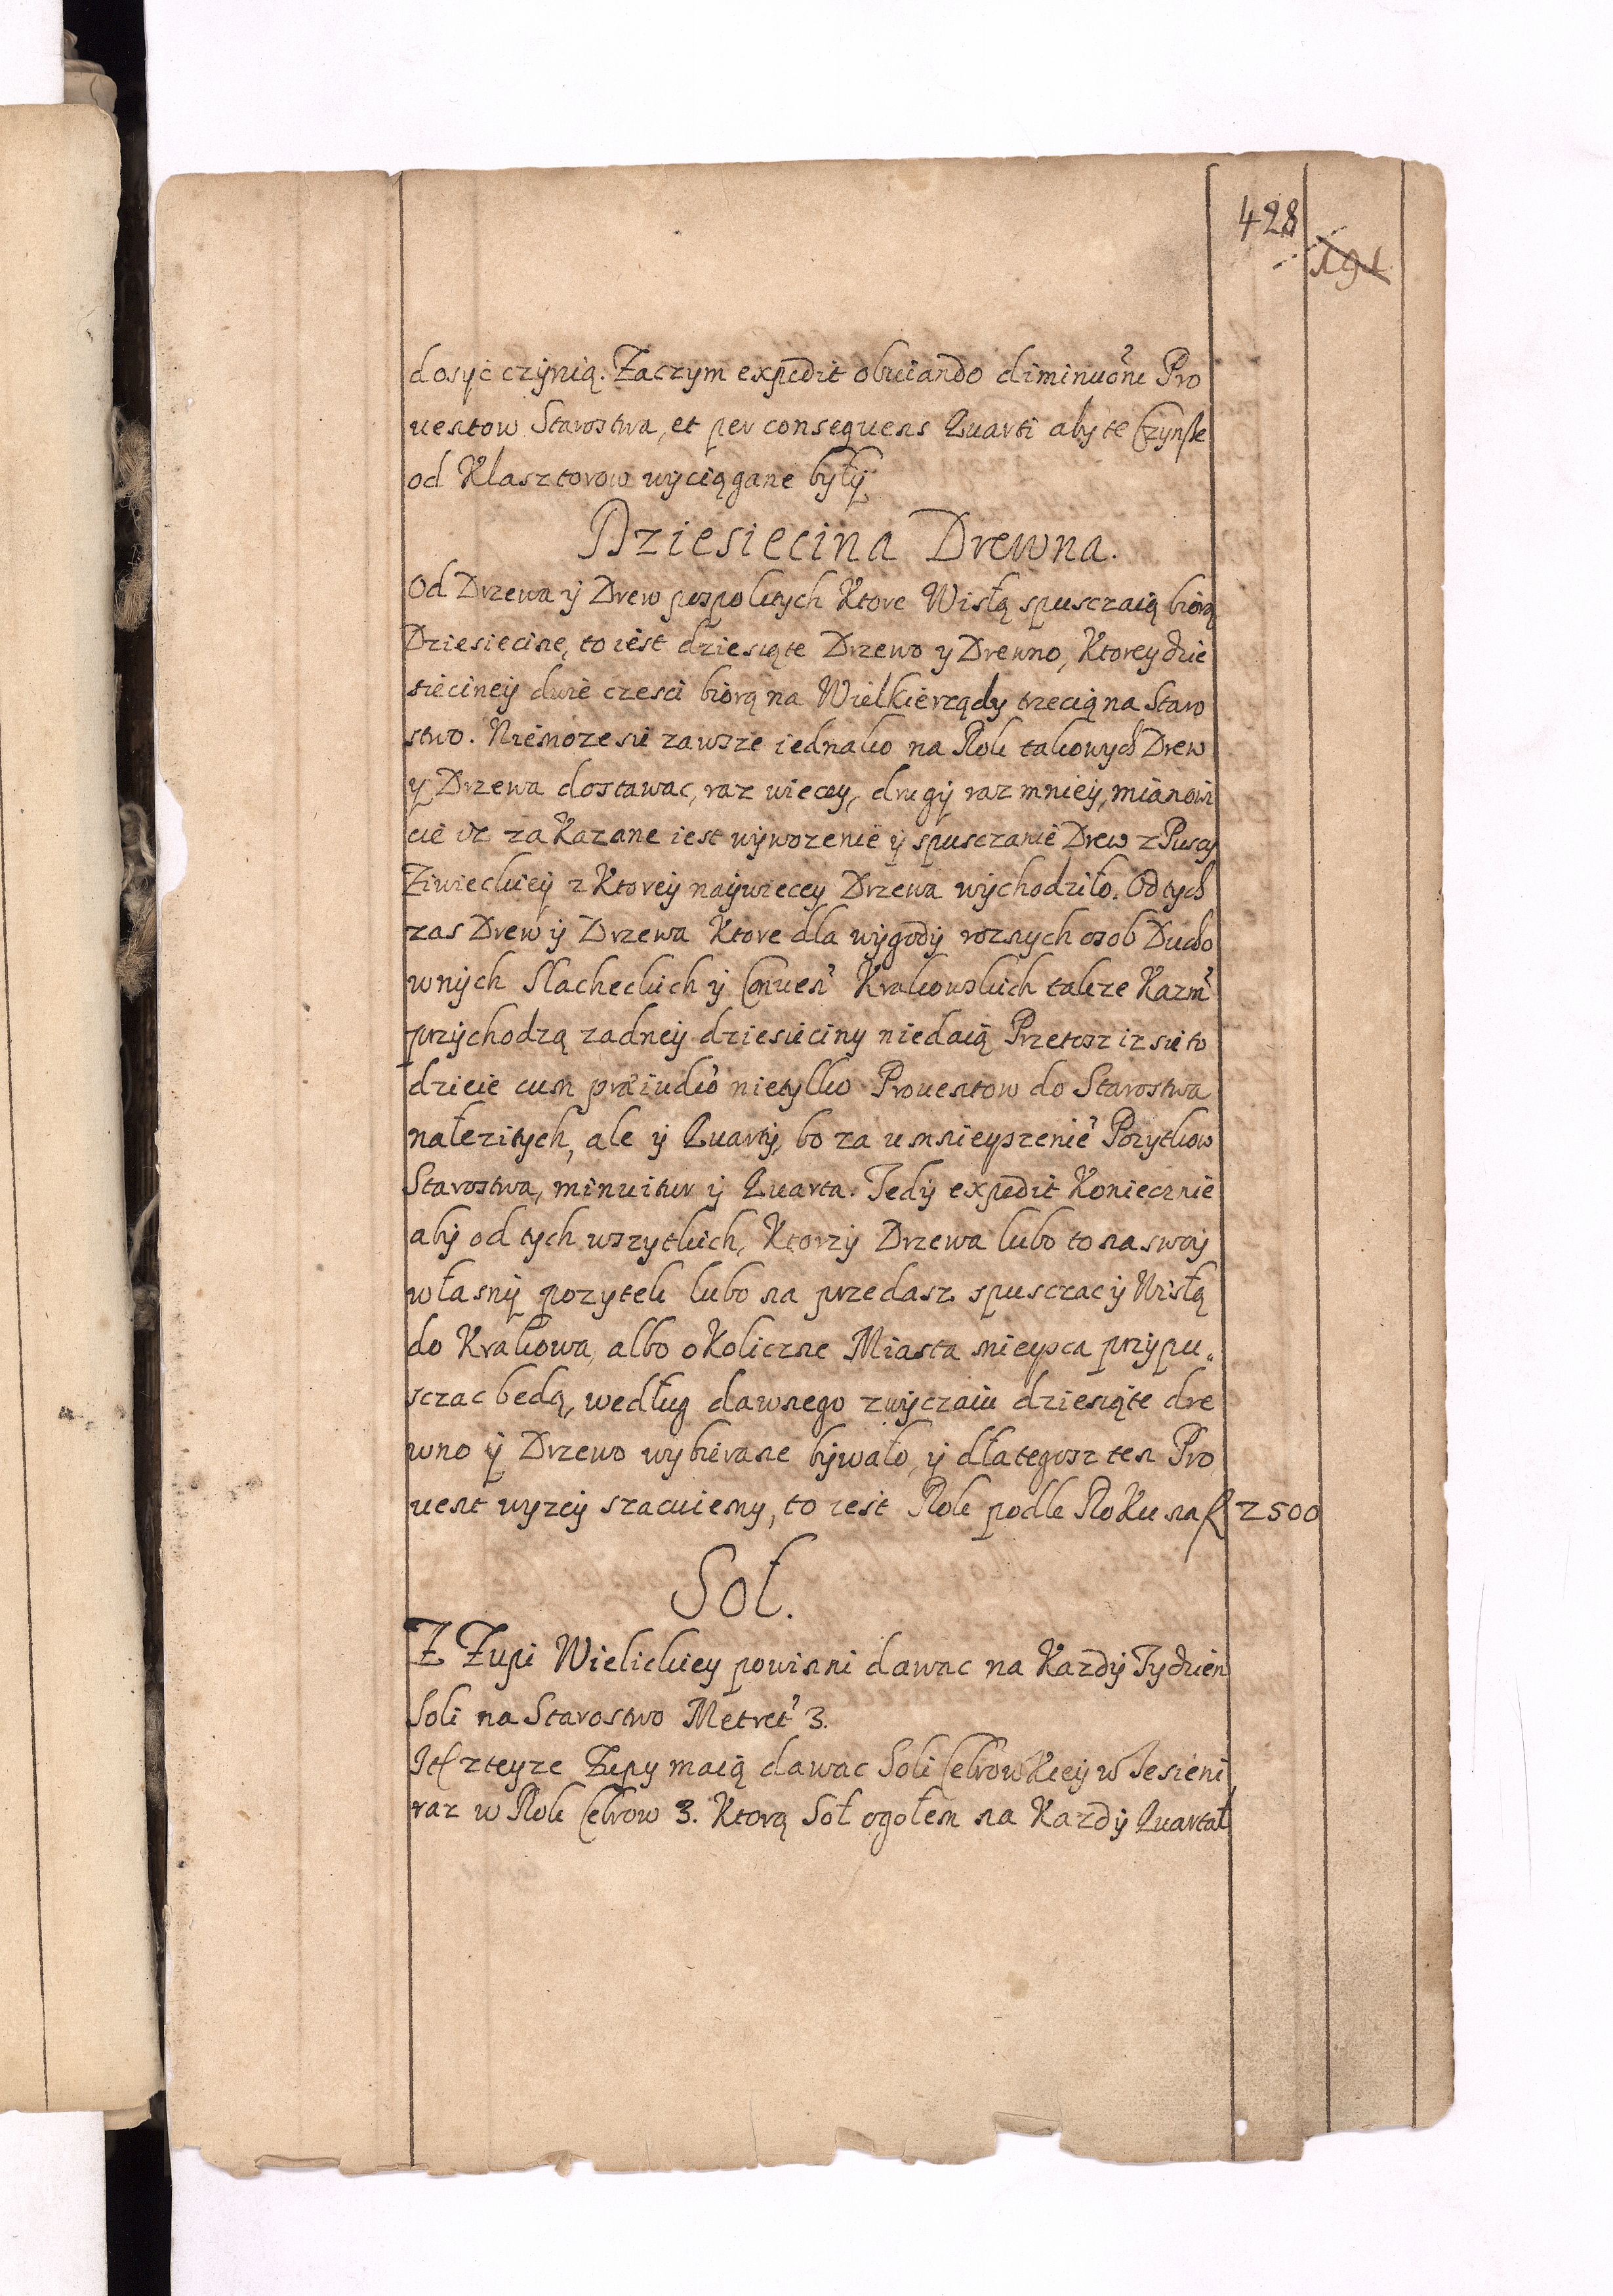 428
191
dosyć czÿnią. Zaczym expedit obuiando diminuõne Pro
uentow Starostwa, et per consequens Quarti aby te Czynsze
od Klasztorow wyciągane były
Dziesiecina Drewna.
Od Drzewa ÿ Drew pospolitych Ktore Wisłą spusczaią biorą
Dziesiecine, to iest dziesiąte Drzewo y Drewno, Ktorey dzie
sieciney dwie czesci biorą na Wielkierządy trzecią na Staro
stwo. Niemoze sie zawsze iednako na Rok takowych Drew
y Drzewa dostawac, raz wiecey, drugÿ raz mnieÿ, mianowi
cie iz zakazane iest wÿwozenie ÿ spusczanie Drew z Puscy
Ziwieckieÿ z Ktoreÿ naÿwiecey Drzewa wÿchodziło. Od tych
zas Drew ÿ Drzewa Ktore dla wÿgodÿ roznych osob Ducho
wnÿch Slacheckich ÿ Conuen Krakowskich takze Kazm
przÿchodzą zadneÿ dziesieciny niedaią Przetosz iz sie to
dzieie cum præiudio nietylko Prouentow do Starostwa
nalezitych, ale ÿ Quartÿ, bo za umnieyszenie Pozytkow
Starostwa, minuitur ÿ Quarta. Tedÿ expedit Koniecznie
abÿ od tych wszytkich, Ktorzÿ Drzewa lubo to na swoÿ
własnÿ pozytek lubo na przedasz spusczac ÿ Wisłą
do Krakowa, albo okoliczne Miasta mieysca przÿpu„
sczac bedą, według dawnego zwÿczaiu dziesiąte dre
wno ÿ Drzewo wybierane bÿwało, ÿ dlategosz ten Pro
uent wyzeÿ szacuiemy, to iest Rok podle Roku na f 2500
Sol.
Z Zupi Wielickiey powinni dawac na Kazdÿ Tydzien
Soli na Starostwo Metret 3.
It z teyze Zupy maią dawac Soli Cebrowkieÿ w Jesieni
raz w Rok Cebrow 3. Ktorą Sol ogołem na Kazdÿ Quartał